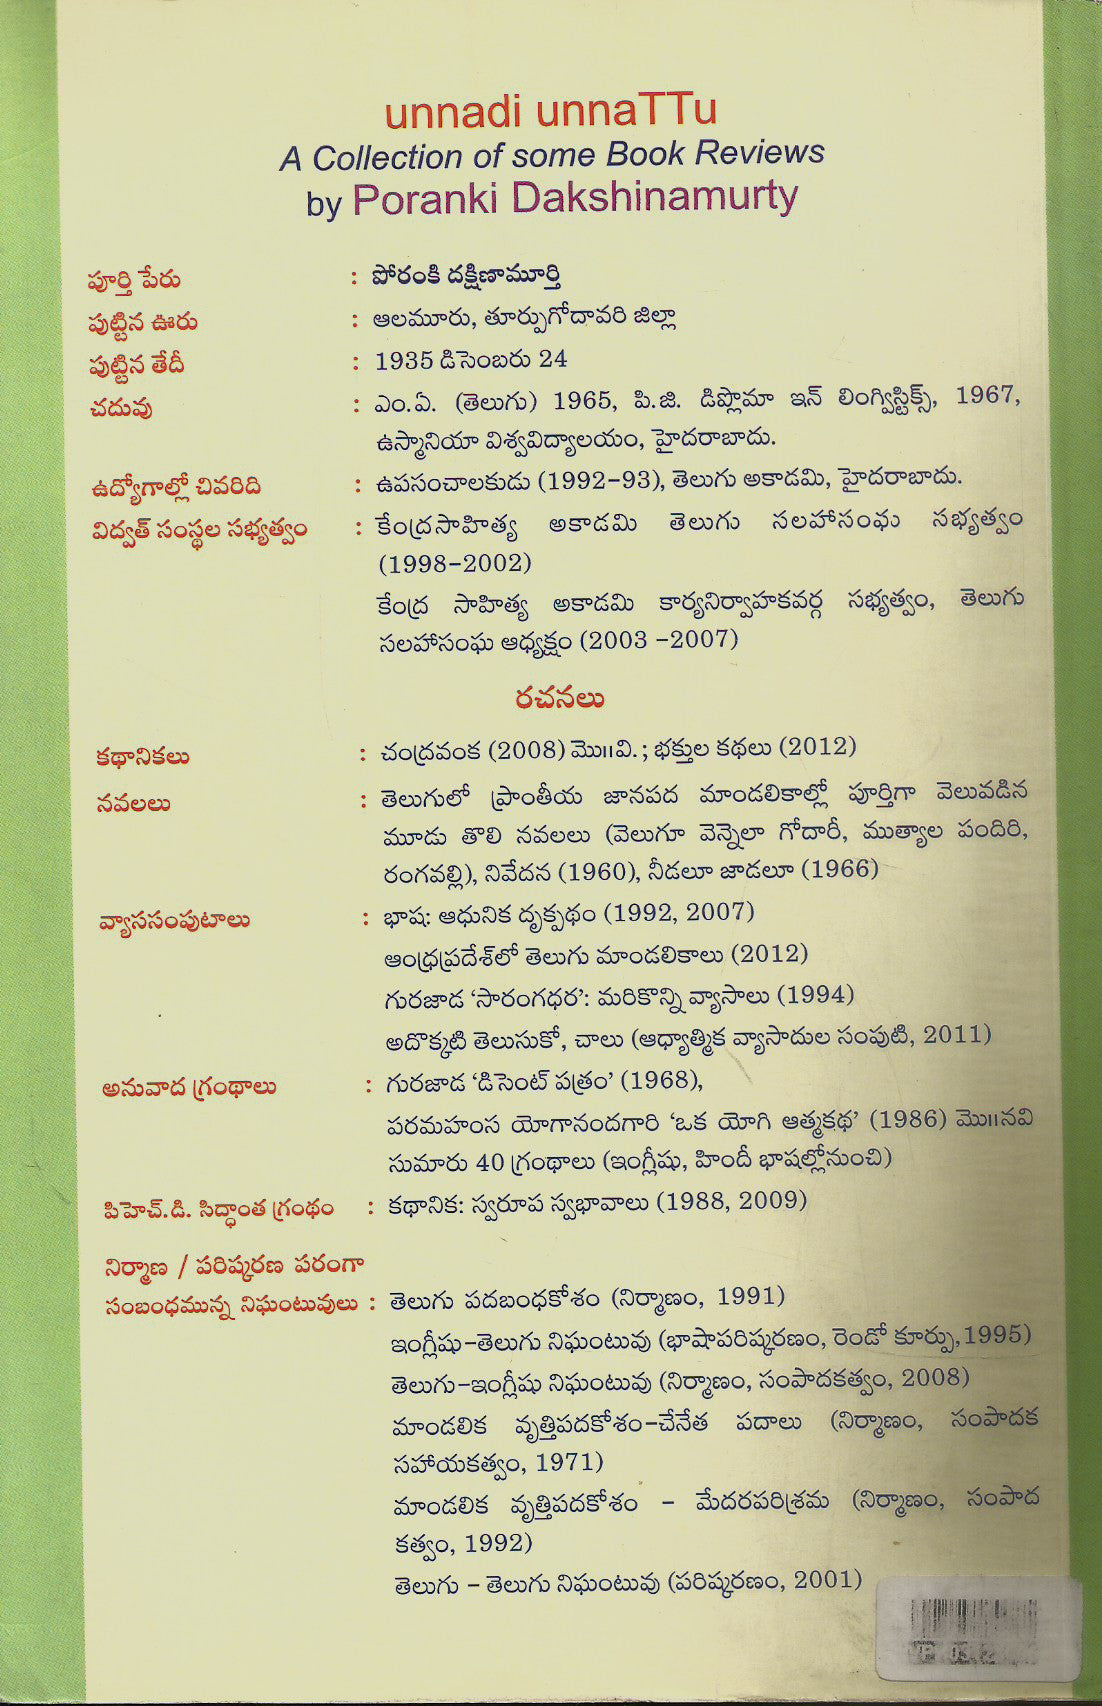 unnadi unnaTTu
A Collection of some Book Reviews
by Poranki Dakshinamurty
పూర్తి పేరు : పోరంకి దక్షిణామూర్తి
పుట్టిన ఊరు : ఆలమూరు, తూర్పుగోదావరి జిల్లా
పుట్టిన తేదీ : 1935 డిసెంబరు 24
చదువు : ఎం.ఏ. (తెలుగు) 1965, పి.జి. డిప్లొమా ఇన్ లింగ్విస్టిక్స్, 1967,
ఉస్మానియా విశ్వవిద్యాలయం, హైదరాబాదు.
ఉద్యోగాల్లో చివరిది : ఉపసంచాలకుడు (1992-93), తెలుగు అకాడమి, హైదరాబాదు.
విద్వత్ సంస్థల సభ్యత్వం : కేంద్రసాహిత్య అకాడమి తెలుగు సలహాసంఘ సభ్యత్వం
(1998-2002)
కేంద్ర సాహిత్య అకాడమి కార్యనిర్వాహకవర్గ సభ్యత్వం, తెలుగు
సలహాసంఘ ఆధ్యక్షం (2003 -2007)
రచనలు
కథానికలు : చంద్రవంక (2008) మొ॥వి. ; భక్తుల కథలు (2012)
నవలలు : తెలుగులో ప్రాంతీయ జానపద మాండలికాల్లో పూర్తిగా వెలువడిన
మూడు తొలి నవలలు (వెలుగూ వెన్నెలా గోదారీ, ముత్యాల పందిరి,
రంగవల్లి), నివేదన (1960), నీడలూ జాడలూ (1966)
వ్యాససంపుటాలు : భాష: ఆధునిక దృక్పథం (1992, 2007)
ఆంధ్రప్రదేశ్‌లో తెలుగు మాండలికాలు (2012)
గురజాడ ‘సారంగధర’: మరికొన్ని వ్యాసాలు (1994)
అదొక్కటి తెలుసుకో, చాలు (ఆధ్యాత్మిక వ్యాసాదుల సంపుటి, 2011)
అనువాద గ్రంథాలు : గురజాడ ‘డిసెంట్ పత్రం’ (1968),
పరమహంస యోగానందగారి ‘ఒక యోగి ఆత్మకథ’ (1986) మొ॥నవి
సుమారు 40 గ్రంథాలు (ఇంగ్లీషు, హిందీ భాషల్లోనుంచి)
పిహెచ్.డి. సిద్ధాంత గ్రంథం : కథానిక: స్వరూప స్వభావాలు (1988, 2009)
నిర్మాణ / పరిష్కరణ పరంగా
సంబంధమున్న నిఘంటువులు : తెలుగు పదబంధకోశం (నిర్మాణం, 1991)
ఇంగ్లీషు-తెలుగు నిఘంటువు (భాషాపరిష్కరణం, రెండో కూర్పు,1995)
తెలుగు-ఇంగ్లీషు నిఘంటువు (నిర్మాణం, సంపాదకత్వం, 2008)
మాండలిక వృత్తిపదకోశం-చేనేత పదాలు (నిర్మాణం, సంపాదక
సహాయకత్వం, 1971)
మాండలిక వృత్తిపదకోశం - మేదరపరిశ్రమ (నిర్మాణం, సంపాద
కత్వం, 1992)
తెలుగు - తెలుగు నిఘంటువు (పరిష్కరణం, 2001)